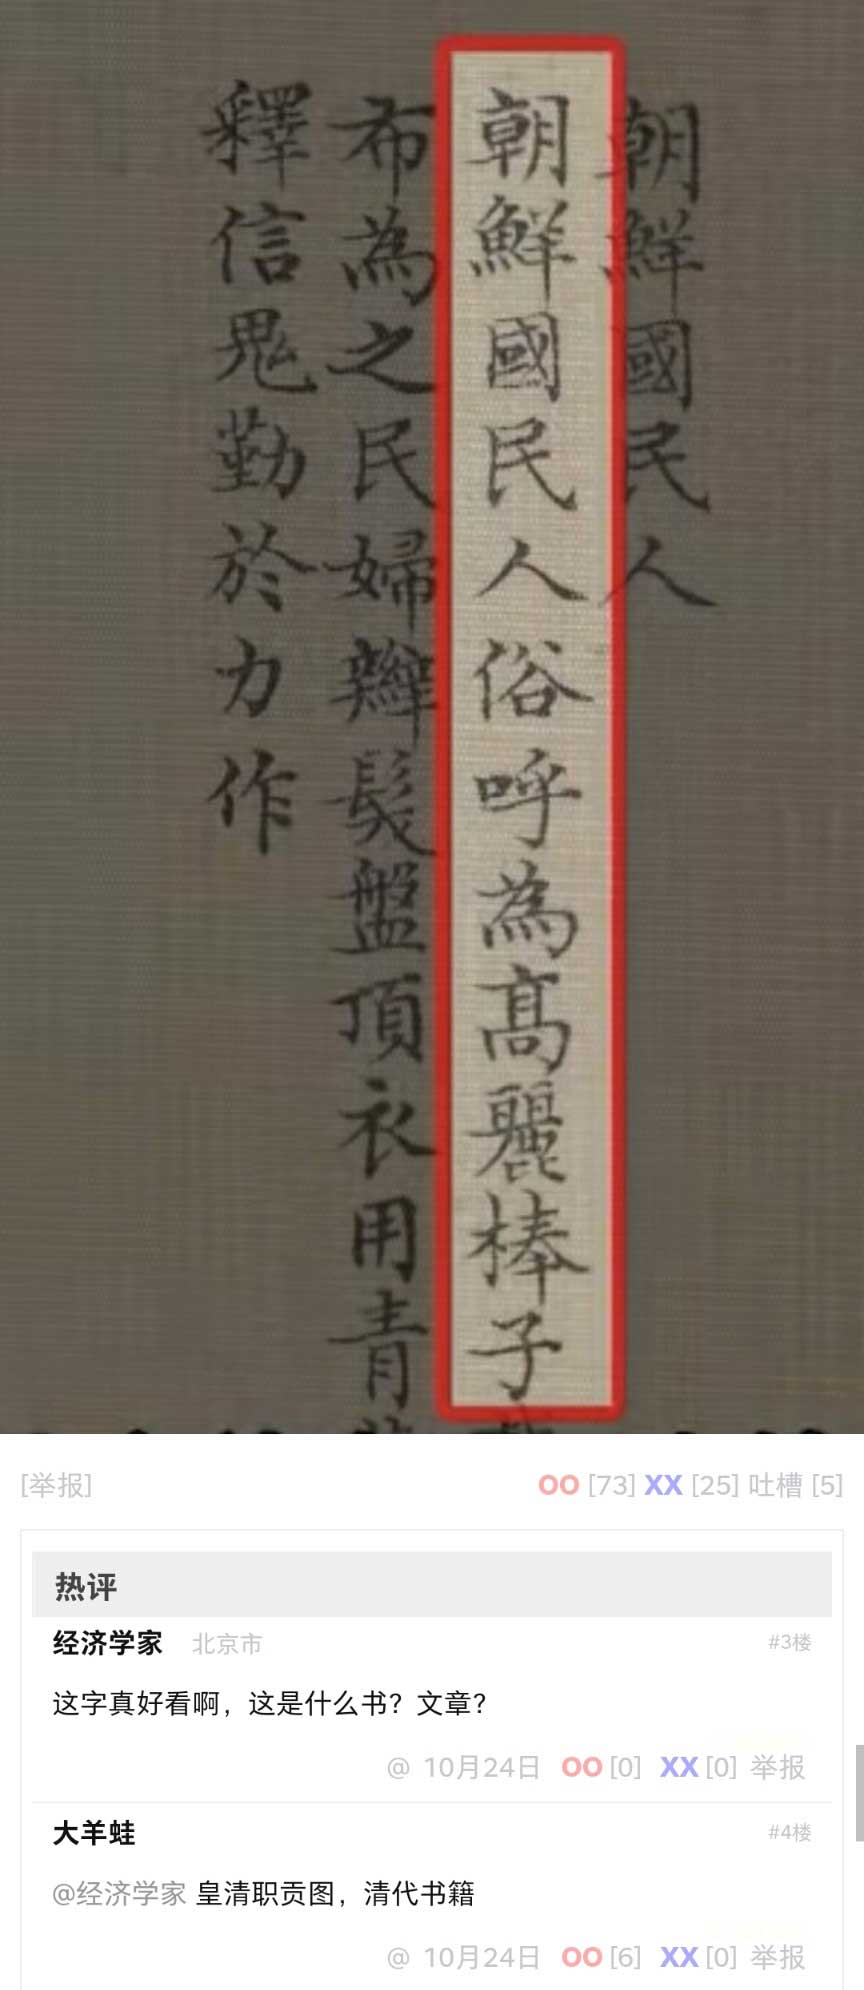 朝鮮國民人
朝鮮國民人俗呼為高麗棒子
布為之民婦辮髮盤頂衣用青
釋信鬼勤於力作
[举报]
OO [73] XX [25] 吐槽 [5]
热评
经济学家 北京市 #3楼
这字真好看啊，这是什么书？文章？
@ 10月24日 OO [0] XX [0] 举报
大羊蛙 #4楼
@经济学家 皇清职贡图，清代书籍
@ 10月24日 OO [6] XX [0] 举报